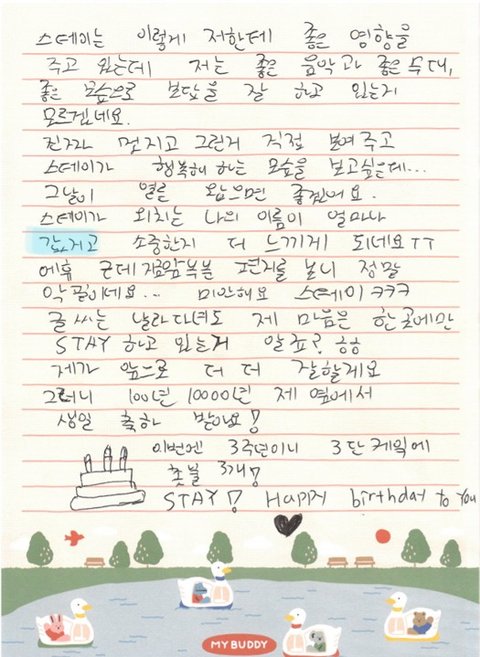 스테이는 이렇게 저한테 좋은 영향을
주고 있는데 저는 좋은 음악과 좋은 무대,
좋은 모습으로 보답을 잘 하고 있는지
모르겠네요.
진짜 멋지고 그런거 직접 보여주고
스테이가 행복해 하는 모습을 보고싶은데...
그날이 얼른 왔으면 좋겠어요.
스테이가 외치는 나의 이름이 얼마나
값지고 소중한지 더 느끼게 되네요ㅜㅜ
에휴 근데 지금앞부분 편지를 보니 정말
악필이네요... 미안해요 스테이 ㅋㅋㅋ
글씨는 날라다녀도 제 마음은 한곳에만
STAY 하고 있는거 알죠? ㅎㅎ
제가 앞으로 더 더 잘할게요
그러니 100년 10000년 제 옆에서
생일 축하 받아요!
이번엔 3주년이니 3단케익에
촛불 3개!
STAY! Happy birthday to You
MY BUDDY